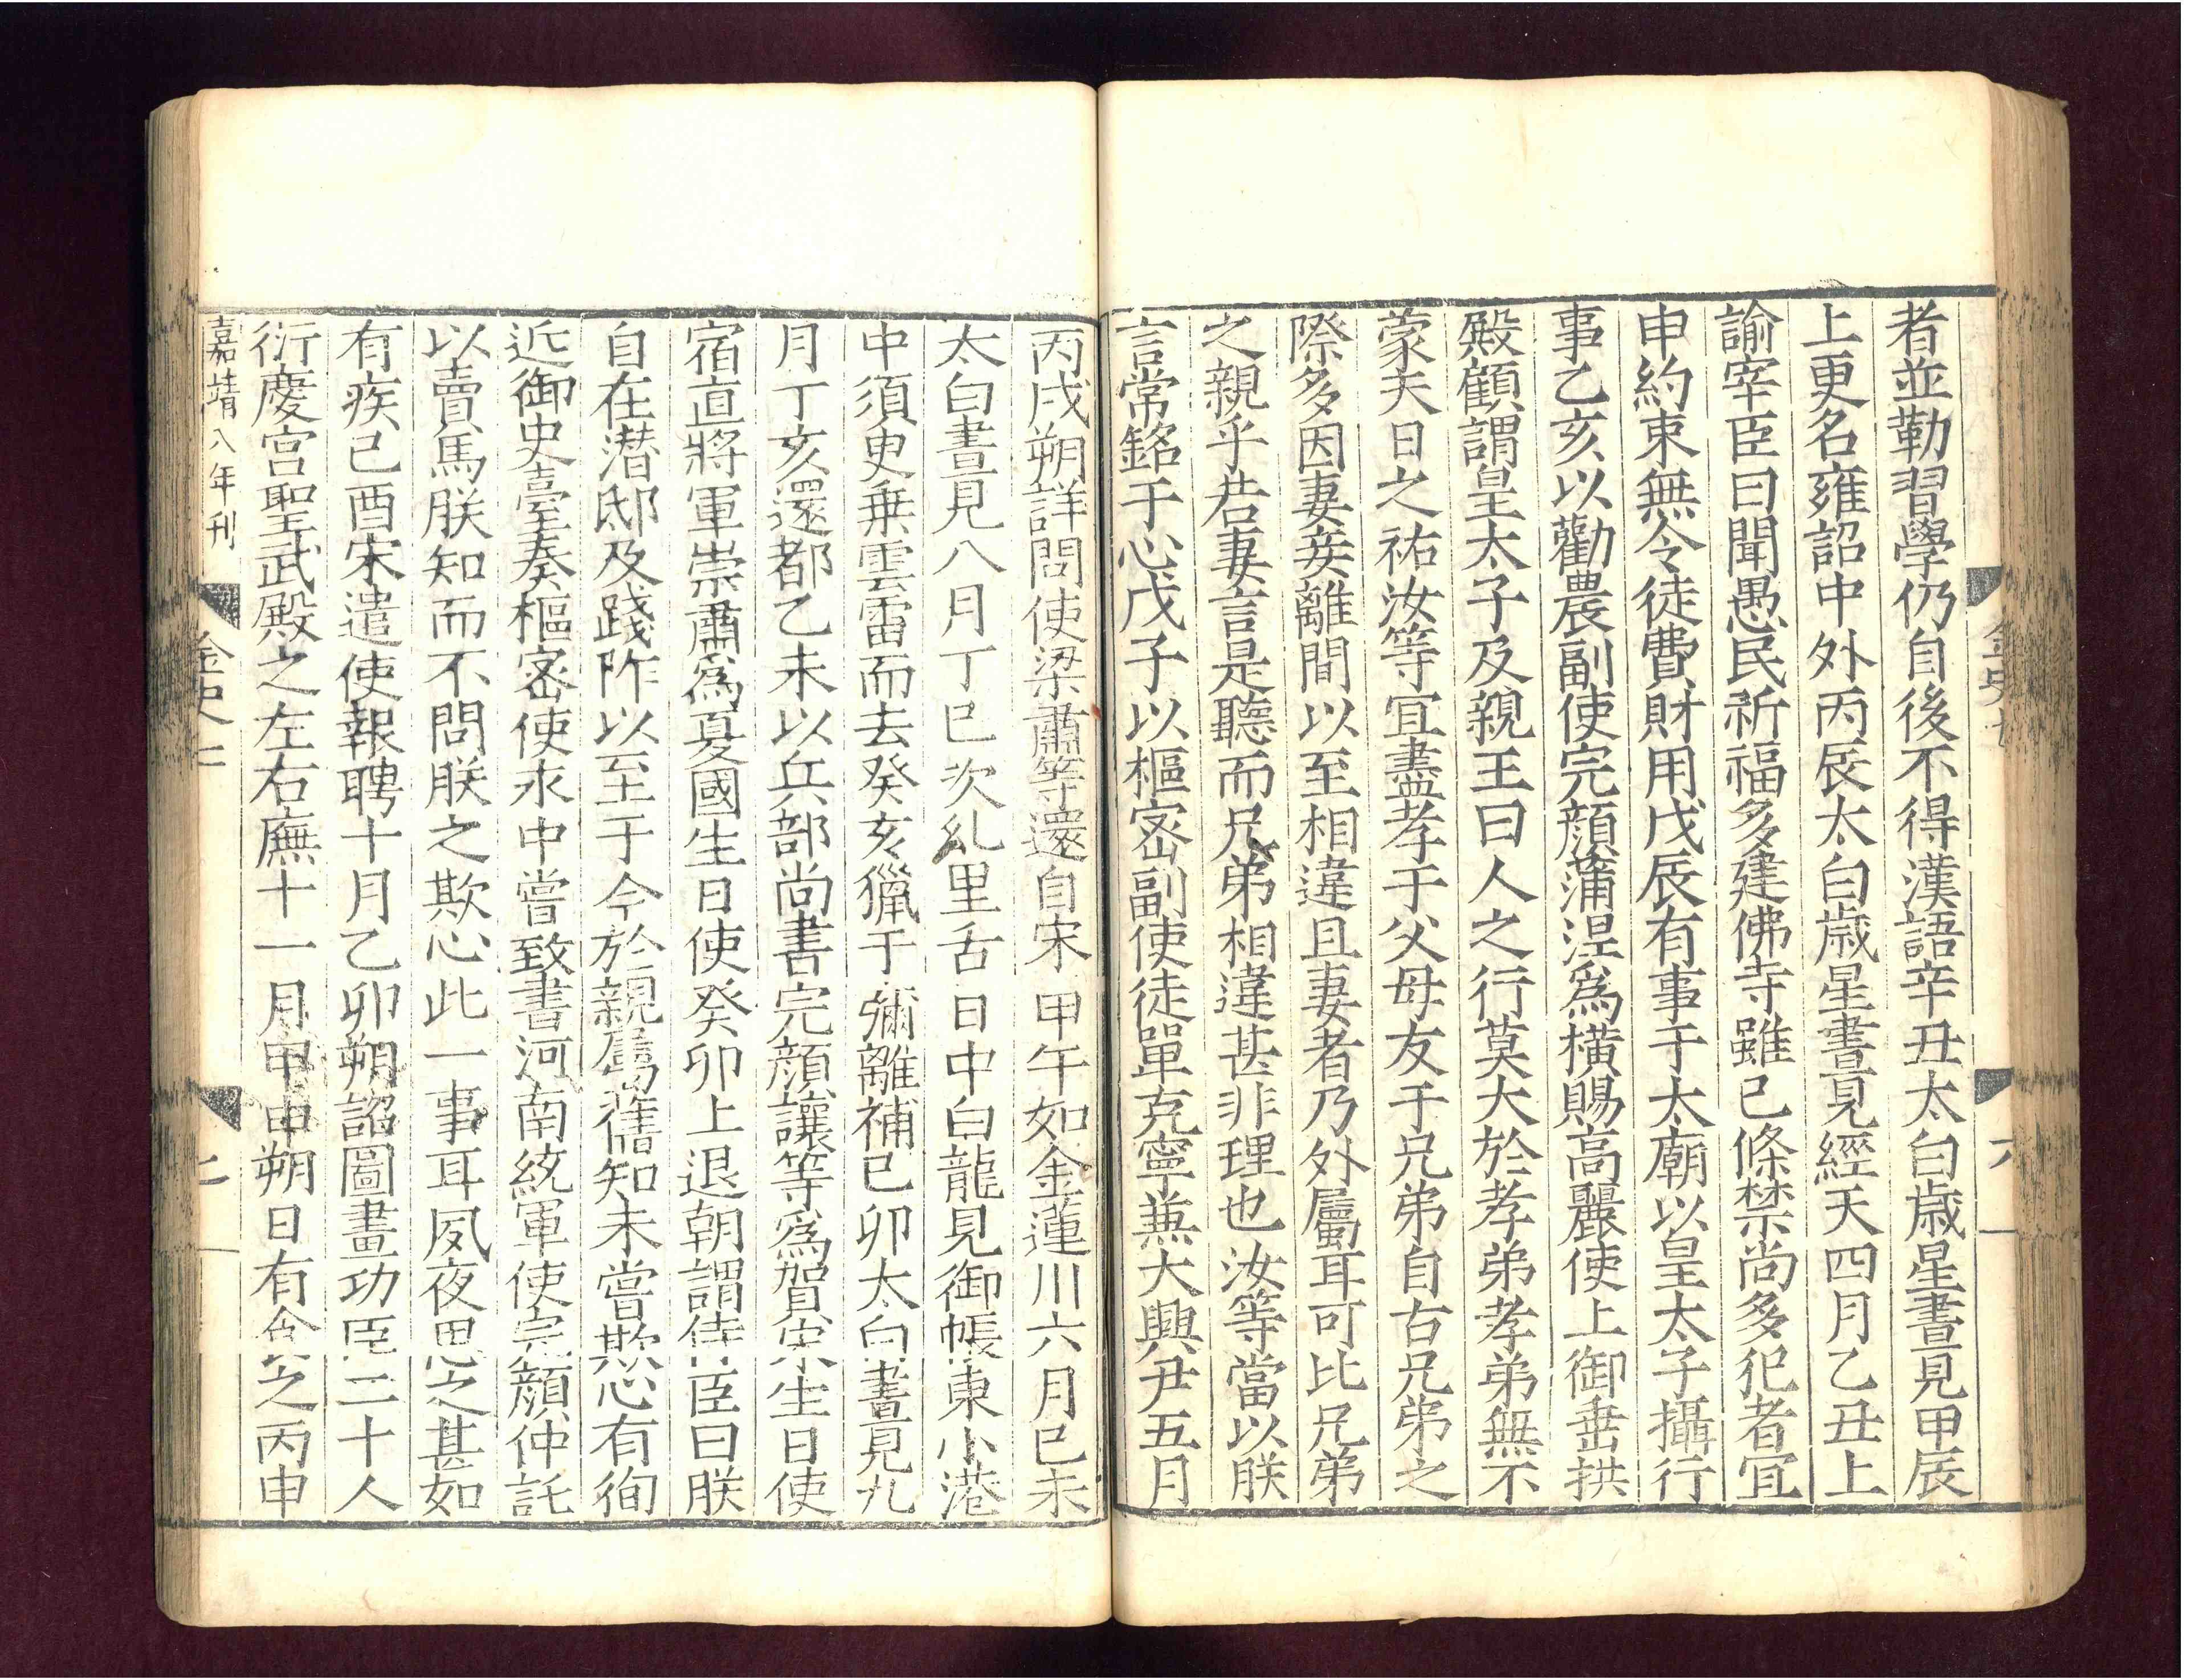 者並勒習學仍自後不得漢語辛丑太白歲星晝見甲辰
上更名雍詔中外丙辰太白歲星晝見經天四月乙丑上
諭宰臣曰聞愚民祈福多建佛寺雖已條禁尚多犯者宜
申約束無令徒費財用戊辰有事于太廟以皇太子攝行
事乙亥以勸農副使完顏蒲涅爲橫賜高麗使上御垂拱
殿顧謂皇太子及親王曰人之行莫大於孝弟孝弟無不
蒙天日之祐汝等宜盡孝于父母友于兄弟自古兄弟之
際多因妻妾離間以至相違且妻者乃外屬耳可比兄弟
之親乎若妻言是聽而兄弟相違甚非理也汝等當以朕
言常銘于心戊子以樞密副使徒單克寧兼大興尹五月
丙戌朔詳問使梁肅等還自宋甲午如金蓮川六月己未
太白晝見八月丁巳次乣里舌日中白龍見御帳東小港
中須臾乗雲雷而去癸亥獵于彌離補己卯太白晝見九
月丁亥還都乙未以兵部尚書完顏讓等爲賀宋生日使
宿直將軍崇肅爲夏國生日使癸卯上退朝謂侍臣曰朕
自在潜邸及踐阼以至于今於親屬舊知未嘗欺心有徇
近御史臺奏樞密使永中嘗致書河南統軍使完顏仲託
以賣馬朕知而不問朕之欺心此一事耳夙夜思之甚如
有疾己酉宋遣使報聘十月乙卯朔詔圖畫功臣二十人
衍慶宮聖武殿之左右廡十一月甲申朔日有食之丙申
嘉靖八年刊
金史七